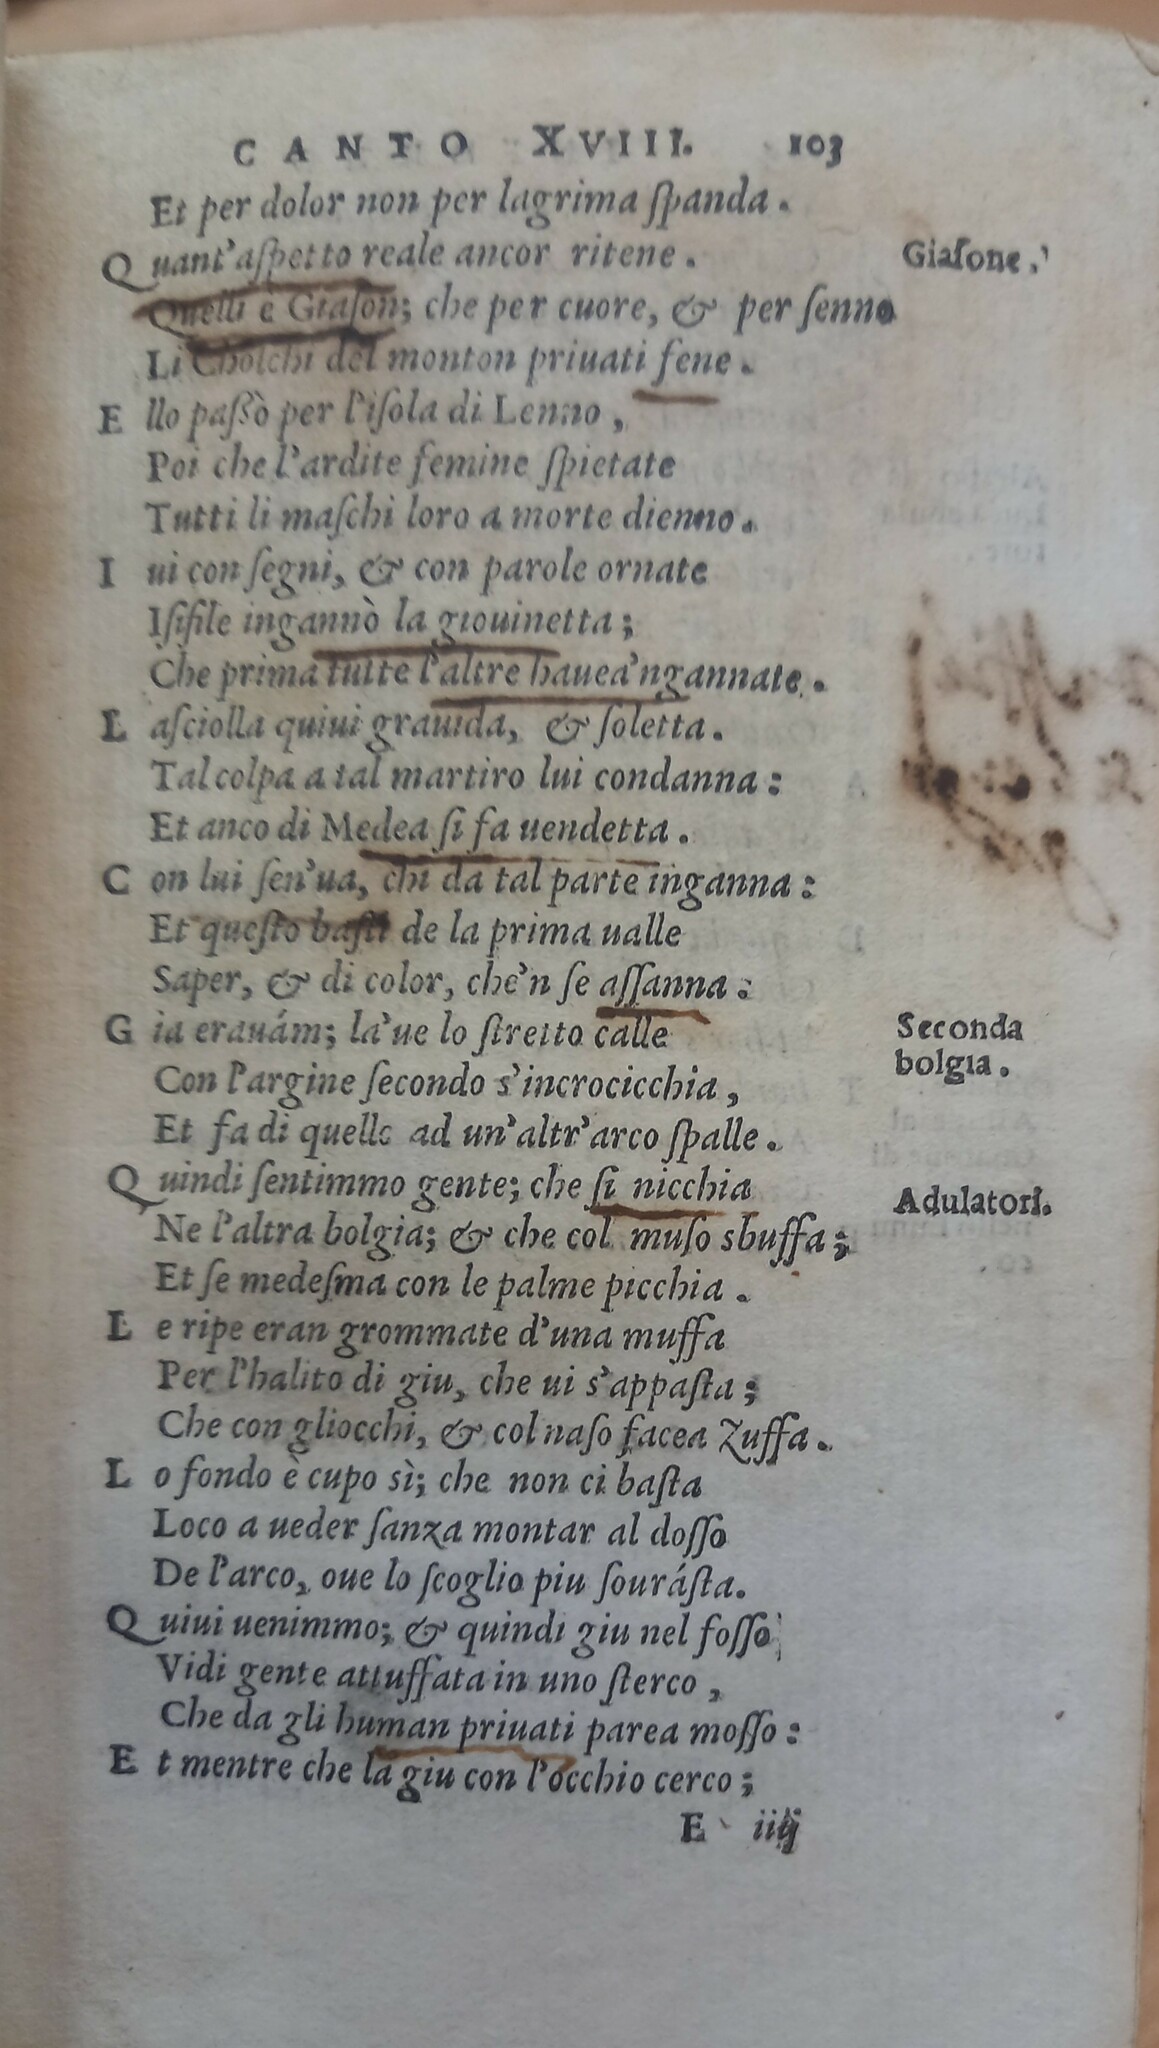 CANTO XVIII. 103
Et per dolor non per lagrima ſpanda.
Quant'aſpetto reale ancor ritene.
Giaſone.
Quelli e Giaſon; che per cuore, & per ſenno
Li Cholchi del monton priuati fene.
Ello paſsò per l'iſola di Lenno,
Poi che l'ardite femine ſpietate
Tutti li maſchi loro a morte dienno.
Iui con ſegni, & con parole ornate
Iſifile ingannò la giouinetta;
Che prima tutte l'altre hauea'ngannate.
Laſciolla quiui grauida, & ſoletta.
Tal colpa a tal martiro lui condanna:
Et anco di Medea ſi fa uendetta.
Con lui ſen'ua, chi da tal parte inganna:
Et queſto baſti de la prima ualle
Saper, & di color, che'n ſe aſſanna:
Gia erauám; la'ue lo ſtretto calle
Seconda
bolgia.
Con l'argine ſecondo s'incrocicchia,
Et fa di quello ad un'altr'arco ſpalle.
Quindi ſentimmo gente; che ſi nicchia
Adulatori.
Ne l'altra bolgia; & che col muſo sbuffa;
Et ſe medeſma con le palme picchia.
Le ripe eran grommate d'una muffa
Per l'halito di giu, che ui s'appaſta;
Che con gliocchi, & col naſo facea Zuffa.
Lo fondo è cupo sì; che non ci baſta
Loco a ueder ſanza montar al doſſo
De l'arco, oue lo ſcoglio piu ſouráſta.
Quiui uenimmo; & quindi giu nel foſſo
Vidi gente attuffata in uno ſterco,
Che da gli human priuati parea moſſo:
Et mentre che la giu con l'occhio cerco;
E iiij